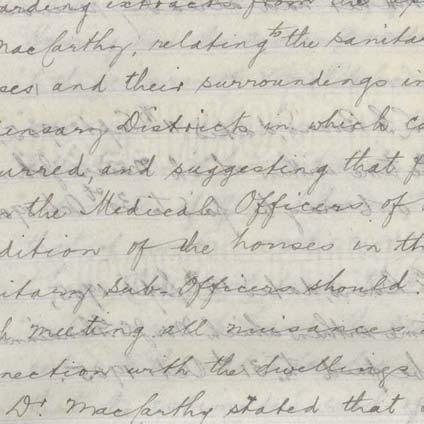 arding extracts from the
MacCarthy, relating to the sanita
ses and their surroundings in
ensary Districts in which ca
urred, and suggesting that f
the Medical Officers of
dition of the houses in th
itary Sub-Officers should
h meeting all nuisances
nection with the dwellings
Dr. MacCarthy stated that